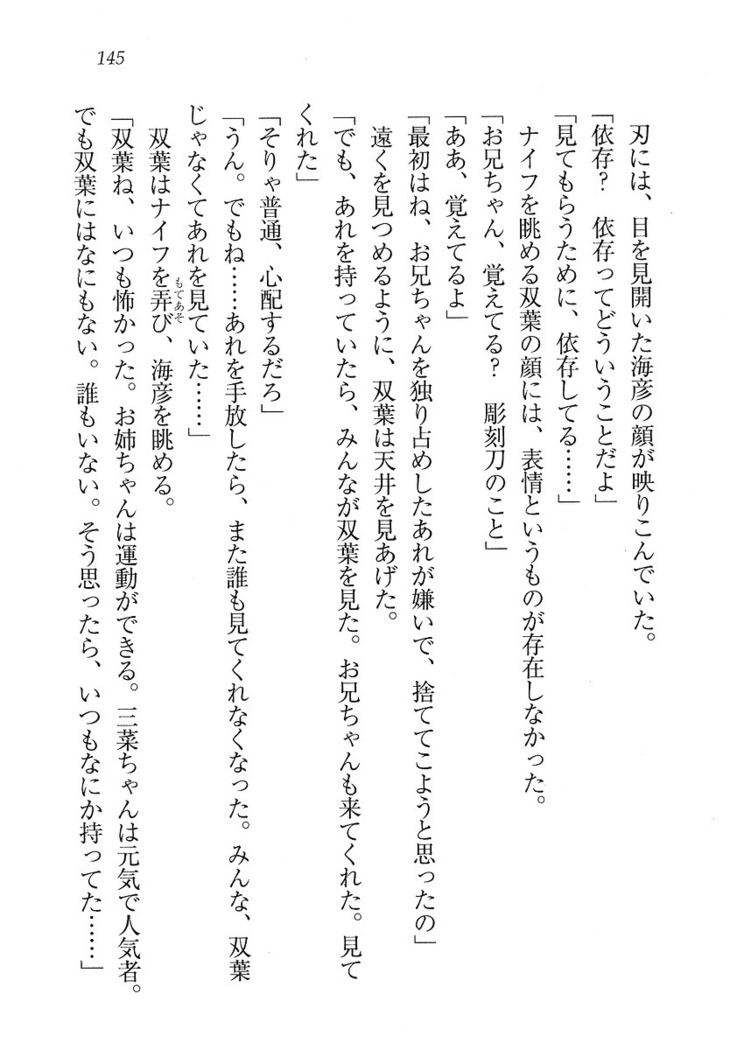 145
刃には、目を見開いた海彦の顔が映りこんでいた。
「依存?　依存ってどういうことだよ」
「見てもらうために、依存してる……」
ナイフを眺める双葉の顔には、表情というものが存在しなかった。
「お兄ちゃん、覚えてる?　彫刻刀のこと」
「ああ、覚えてるよ」
「最初はね、お兄ちゃんを独り占めしたあれが嫌いで、捨ててこようと思ったの」
遠くを見つめるように、双葉は天井を見あげた。
「でも、あれを持っていたら、みんなが双葉を見た。お兄ちゃんも来てくれた。見て
くれた」
「そりゃ普通、心配するだろ」
「うん。でもね……あれを手放したら、また誰も見てくれなくなった。みんな、双葉
じゃなくてあれを見ていた……」
双葉はナイフを弄び、海彦を眺める。
もてあそ
「双葉ね、いつも怖かった。お姉ちゃんは運動ができる。三菜ちゃんは元気で人気者。
でも双葉にはなにもない。誰もいない。そう思ったら、いつもなにか持ってた……」